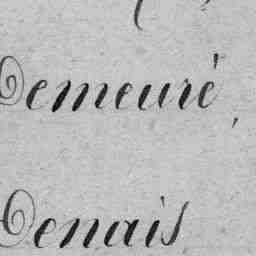 Demeuré,
Denais